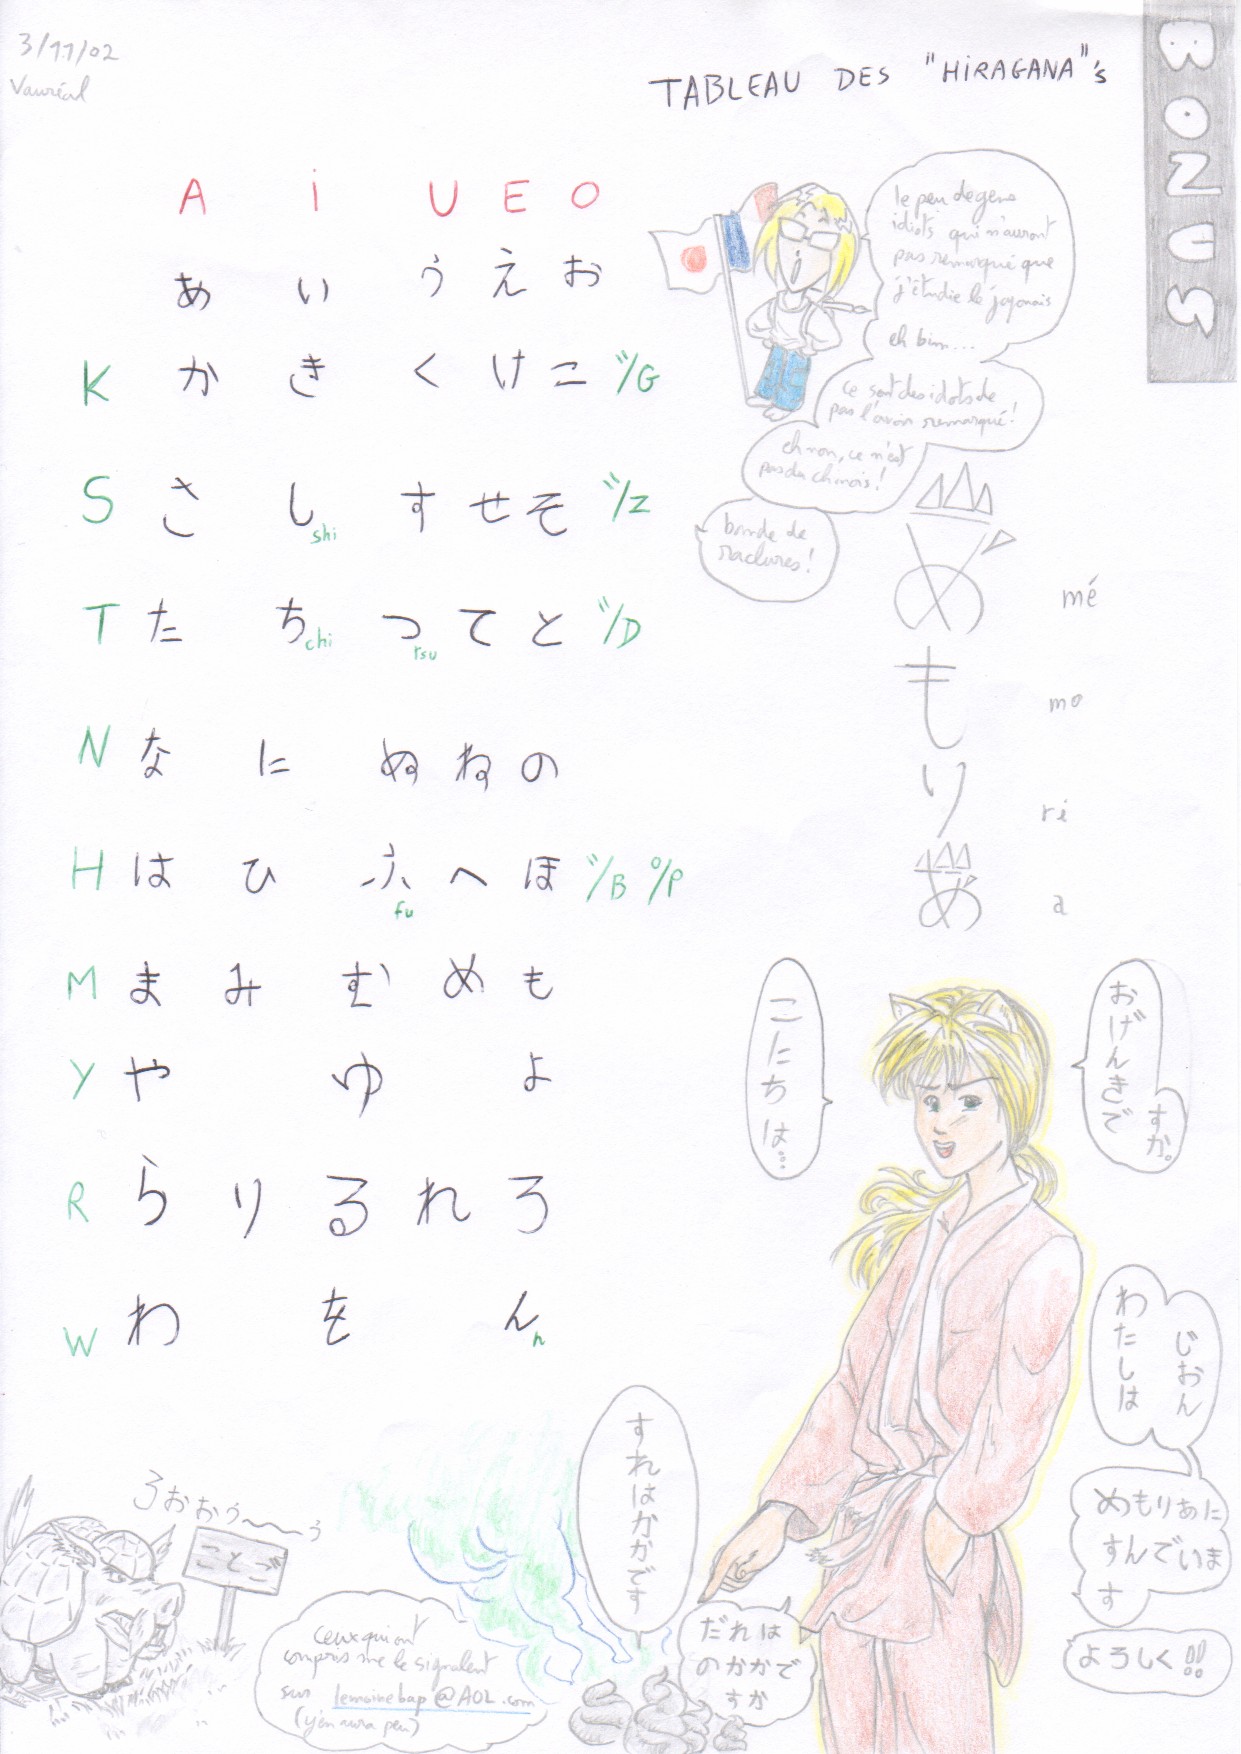 3/11/02
Vauréal
TABLEAU DES "HIRAGANA"'s
BONUS
A i U E O
あ い う え お
K か き く け こ ゛/G
S さ し shi す せ そ ゛/Z
T た ち chi つ tsu て と ゛/D
N な に ぬ ね の
H は ひ ふ fu へ ほ ゛/B ゜/P
M ま み む め も
Y や ゆ よ
R ら り る れ ろ
W わ を ん n
le peu de gens
idiots qui n'auront
pas remarqué que
j'étudie le japonais
eh bien...
ce sont des idiots de
pas l'avoir remarqué!
eh non, ce n'est
pas du chinois!
bande de
raclures!
め mé
も mo
り ri
あ a
こにちは...
おげんきで
すか。
わたしは
じおん
めもりあに
すんでいま
す
よろしく!!
すれはかかです
だれは
のかかで
すか
ろおおう〜〜う
ことご
Ceux qui ont
compris me le signalent
sur lemoinebap@AOL.com
(y'en aura peu)